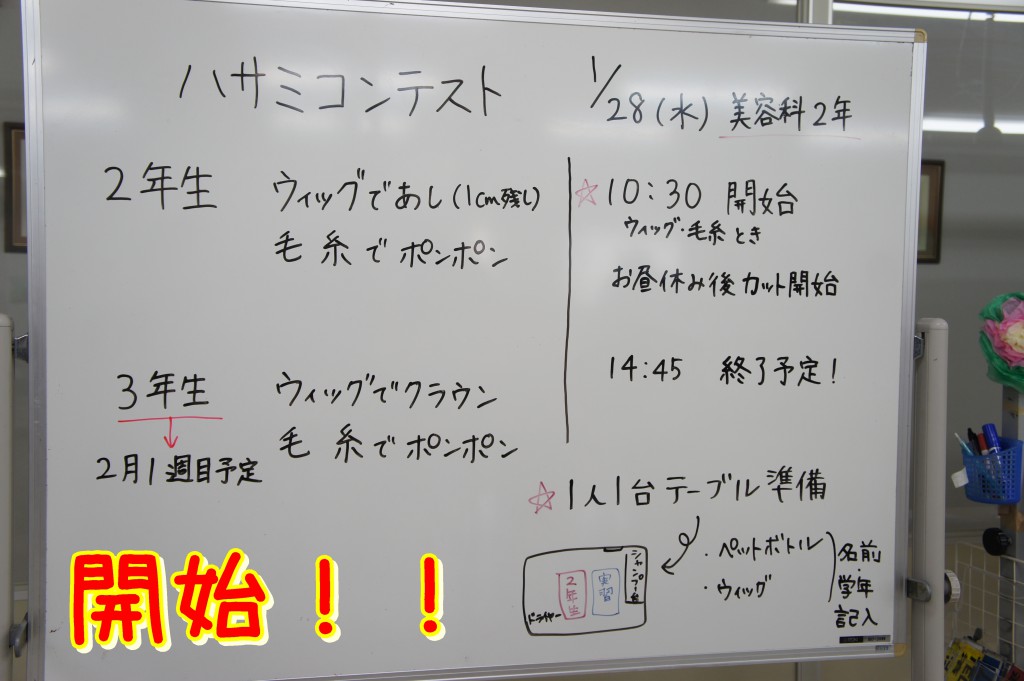 ハサミコンテスト
1/28(水) 美容科2年
2年生 ウィッグであし(1cm残し)
毛糸でポンポン
3年生 ウィッグでクラウン
毛糸でポンポン
2月1週目予定
☆10:30 開始
ウィッグ・毛糸とき
お昼休み後カット開始
14:45 終了予定!
☆1人1台テーブル準備
・ペットボトル
・ウィッグ
名前・学年
記入
シャンプー台
実習
2年生
ドライヤー
開始!!